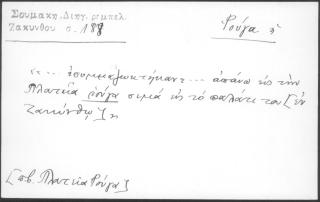 Σουμάκη, Διηγ. ρεμπελ.
Ζακύνθου σ. 188
Ρούγα ἡ
«... ἐσυμμαζωκτήκαν... ἀπάνω εἰς τὴν
Πλατεῖα ρούγα σιμὰ εἰς τὸ παλάτι του [ἐν
Ζακύνθῳ]»
[πβ. Πλατεῖα Ρούγα]